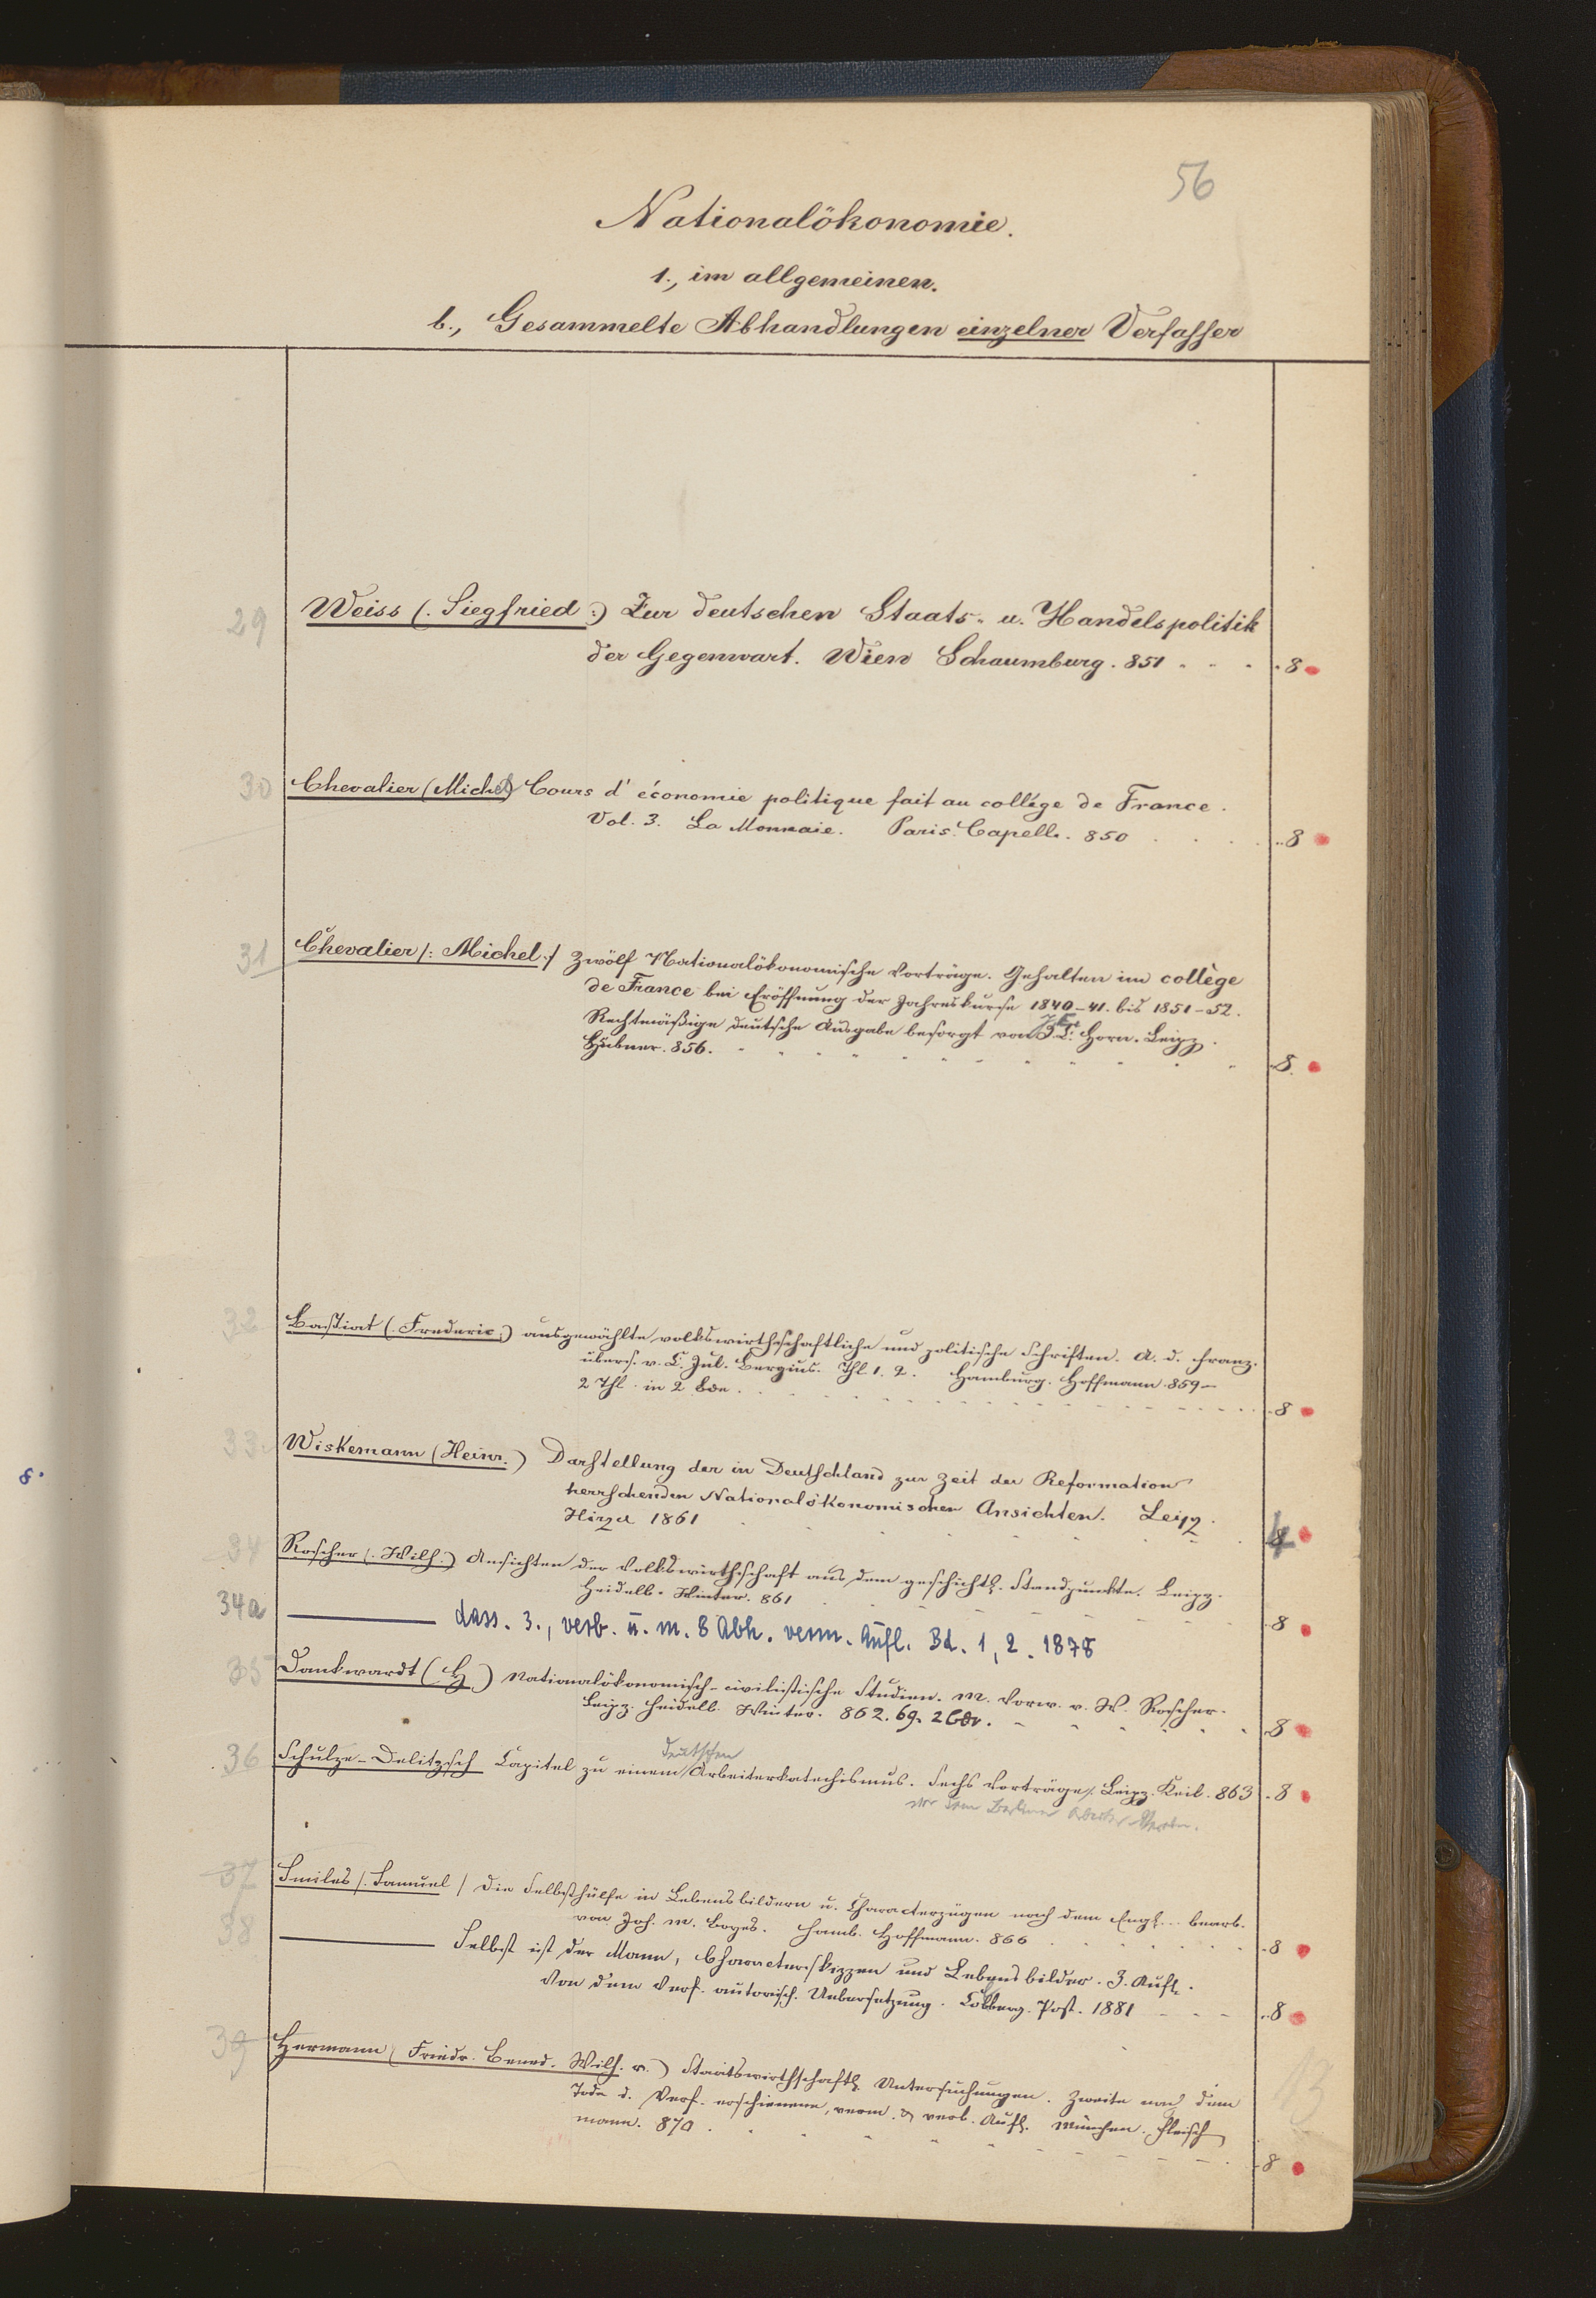 56
Nationalökonomie.
1., im allgemeinen.
b., Gesammelte Abhandlungen einzelner Verfasser
29 Weiss (: Siegfried :) Zur deutschen Staats- u. Handelspolitik
der Gegenwart. Wien Schaumburg. 851 8
30 Chevalier (Michel) Cours d'économie politique fait au collége de France.
Vol. 3. La Monnaie. Paris. Capelle. 850 8
31 Chevalier /: Michel :/ Zwölf Nationalökonomische Vorträge. Gehalten im collège
de France bei Eröffnung der Jahreskurse 1840-41. bis 1851-52.
Rechtmäßige deutsche Ausgabe besorgt von J. E. Horn. Leipz.
Hübner. 856. 8.
32 Bastiat (: Frederic :) ausgewählte volkswirthschaftliche und politische Schriften. A. d. Franz.
übers. v. C. Jul. Bergius. Thl 1. 2. Hamburg. Hoffmann 859 -
2 Thl. in 2 Bde. 8
33. Wiskemann (Heinr.) Darstellung der in Deutschland zur Zeit der Reformation
herrschenden Nationalökonomischen Ansichten. Leipz.
Hirzel 1861 4
34 Roscher (: Wilh :) Ansichten der Volkswirthschaft aus dem geschichtl. Standpunkte. Leipz.
Heidelb. Winter. 861 8
34a ——— dass. 3., verb. u. m. 8 Abh. verm. Aufl. Bd. 1, 2. 1878
35 Dankwardt (: H ) Nationalökonomisch-civilistische Studien. M. Vorw. v. W. Roscher.
Leipz. Heidelb. Winter. 862. 69. 2 Bde. 8
deutschen
36 Schulze-Delitzsch Capitel zu einem Arbeiterkatechismus. Sechs Vorträge. Leipz. Keil. 863 8
vor dem Berliner Arbeiter-Verein.
37 Smiles /: Samuel / Die Selbsthülfe in Lebensbildern u. Characterzügen nach dem Engl. bearb.
von Joh. M. Boyes. Hamb. Hoffmann. 866 8
38 ——— Selbst ist der Mann, Characterskizzen und Lebensbilder. 3. Aufl.
Von dem Verf. autorisch. Uebersetzung. Colberg. Post. 1881 8
39 Hermann (Friedr. Bened. Wilh. v.) Staatswirthschaftl. Untersuchungen. Zweite nach dem
Tode d. Verf. erschienene, verm. & verb. Aufl. München. Fleisch
mann. 870. 8
8.